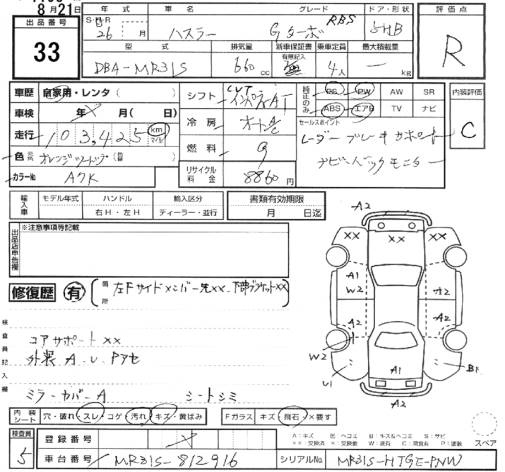 8月21日
出品番号
33
年式
S・H・R
26
月
車名
ハスラー
グレード
Gターボ
RBS
ドア・形状
5HB
評価点
R
型式
DBA-MR31S
排気量
660
cc
新車保証書
有無記入
無
乗車定員
4人
最大積載量
kg
車歴
自家用・レンタ(
)
車検
年
月(
日)
走行
103,425
km
マイル
色
オレンジツートップ
カラーNo
A7K
シフト
CVT
インパネAT
冷房
オートAC
燃料
G
リサイクル料金
8860円
検証のみ
PS
PW
AW
SR
ABS
エアB
TV
ナビ
セールスポイント
レーダーブレーキサポート
ナビ バックモニター
内装評価
C
輸入車
モデル年式
ハンドル
輸入区分
年
右H・左H
ディーラー・並行
書類有効期限
月
日迄
出品店申告欄
※注意事項等記載
修復歴
有
箇所
左Fサイドメンバー先xx、
検査員記入欄
コアサポートxx
外装 A、U、Pアセ
ミラーカバーA
シートシミ
内装シート
穴・破れ
スレ
コゲ
汚れ
キズ
黄ばみ
Fガラス
キズ
飛石
X要す
検査員
5
登録番号
車台番号
MR31S-812916
シリアルNo.
MR31S-HTGE-PNW
A2
XX
XX
XX
A1
W2
A2
A2
W2
U1
A1
B1
A2
スペア